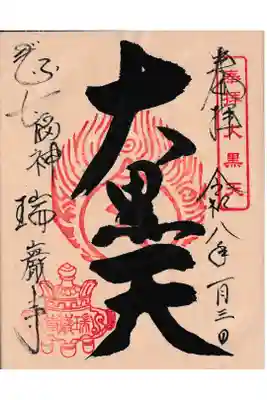 奉拝大黒天
奉拝
令和八年一月三日
大黒天
七福神
瑞巖寺